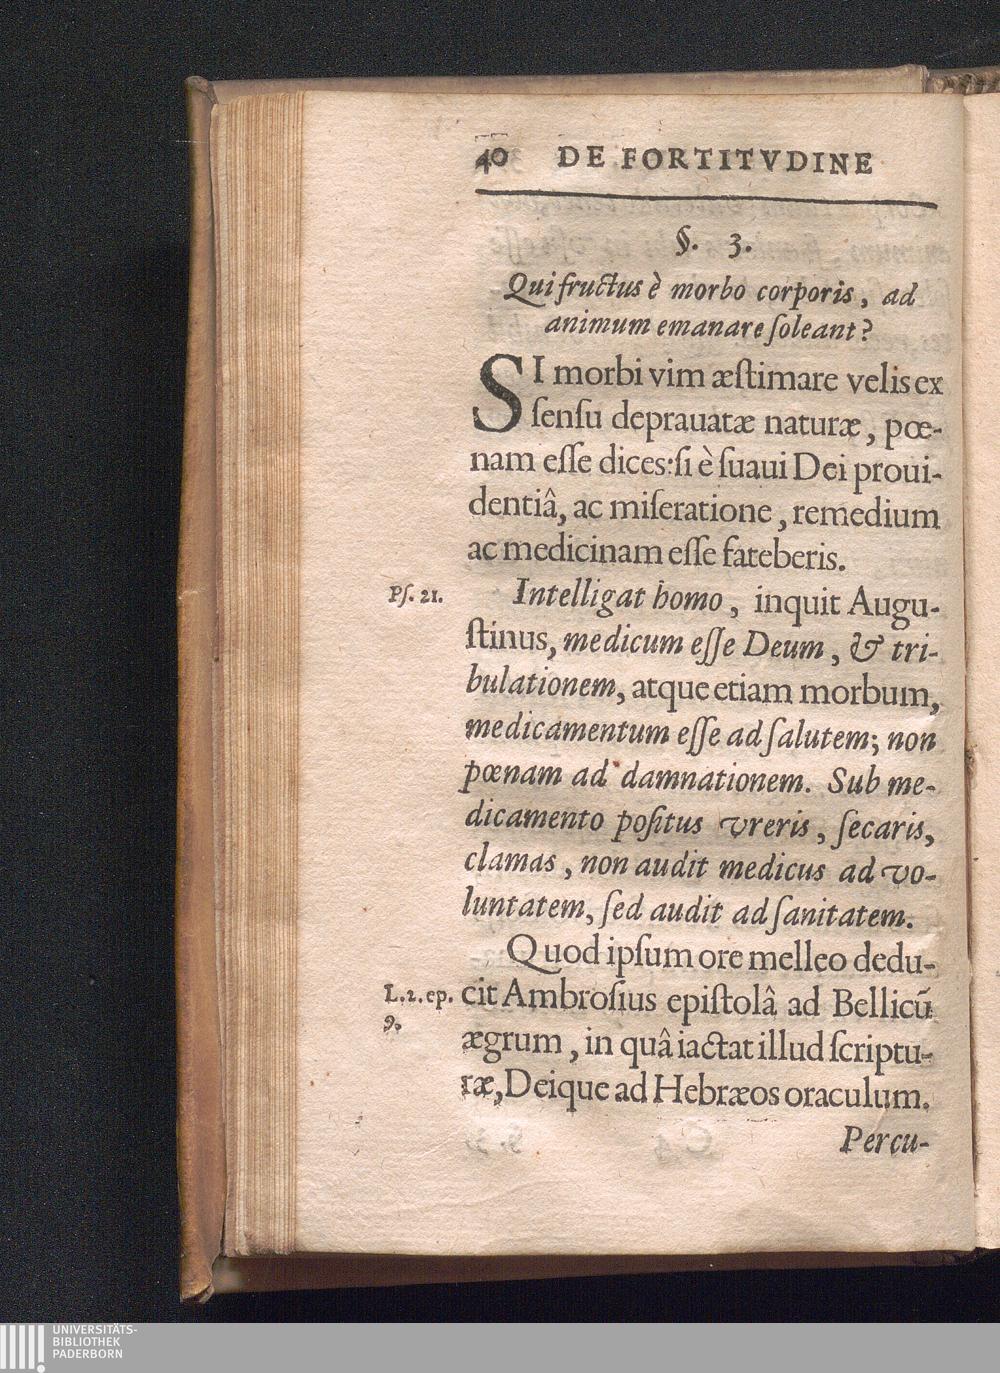 40 DE FORTITVDINE
§. 3.
Qui fructus è morbo corporis, ad
animum emanare ſoleant?
SI morbi vim æſtimare velis ex
ſenſu deprauatæ naturæ, pœ-
nam eſſe dices: ſi è ſuaui Dei proui-
dentiâ, ac miſeratione, remedium
ac medicinam eſſe fateberis.
Pſ. 21. Intelligat homo, inquit Augu-
ſtinus, medicum eſſe Deum, & tri-
bulationem, atque etiam morbum,
medicamentum eſſe ad ſalutem; non
pœnam ad damnationem. Sub me-
dicamento poſitus vreris, ſecaris,
clamas, non audit medicus ad vo-
luntatem, ſed audit ad ſanitatem.
Quod ipſum ore melleo dedu-
L. 2. ep. cit Ambroſius epiſtolâ ad Bellicũ
9. ægrum, in quâ iactat illud ſcriptu-
ræ, Deique ad Hebræos oraculum.
Percu-
UNIVERSITÄTS-
BIBLIOTHEK
PADERBORN